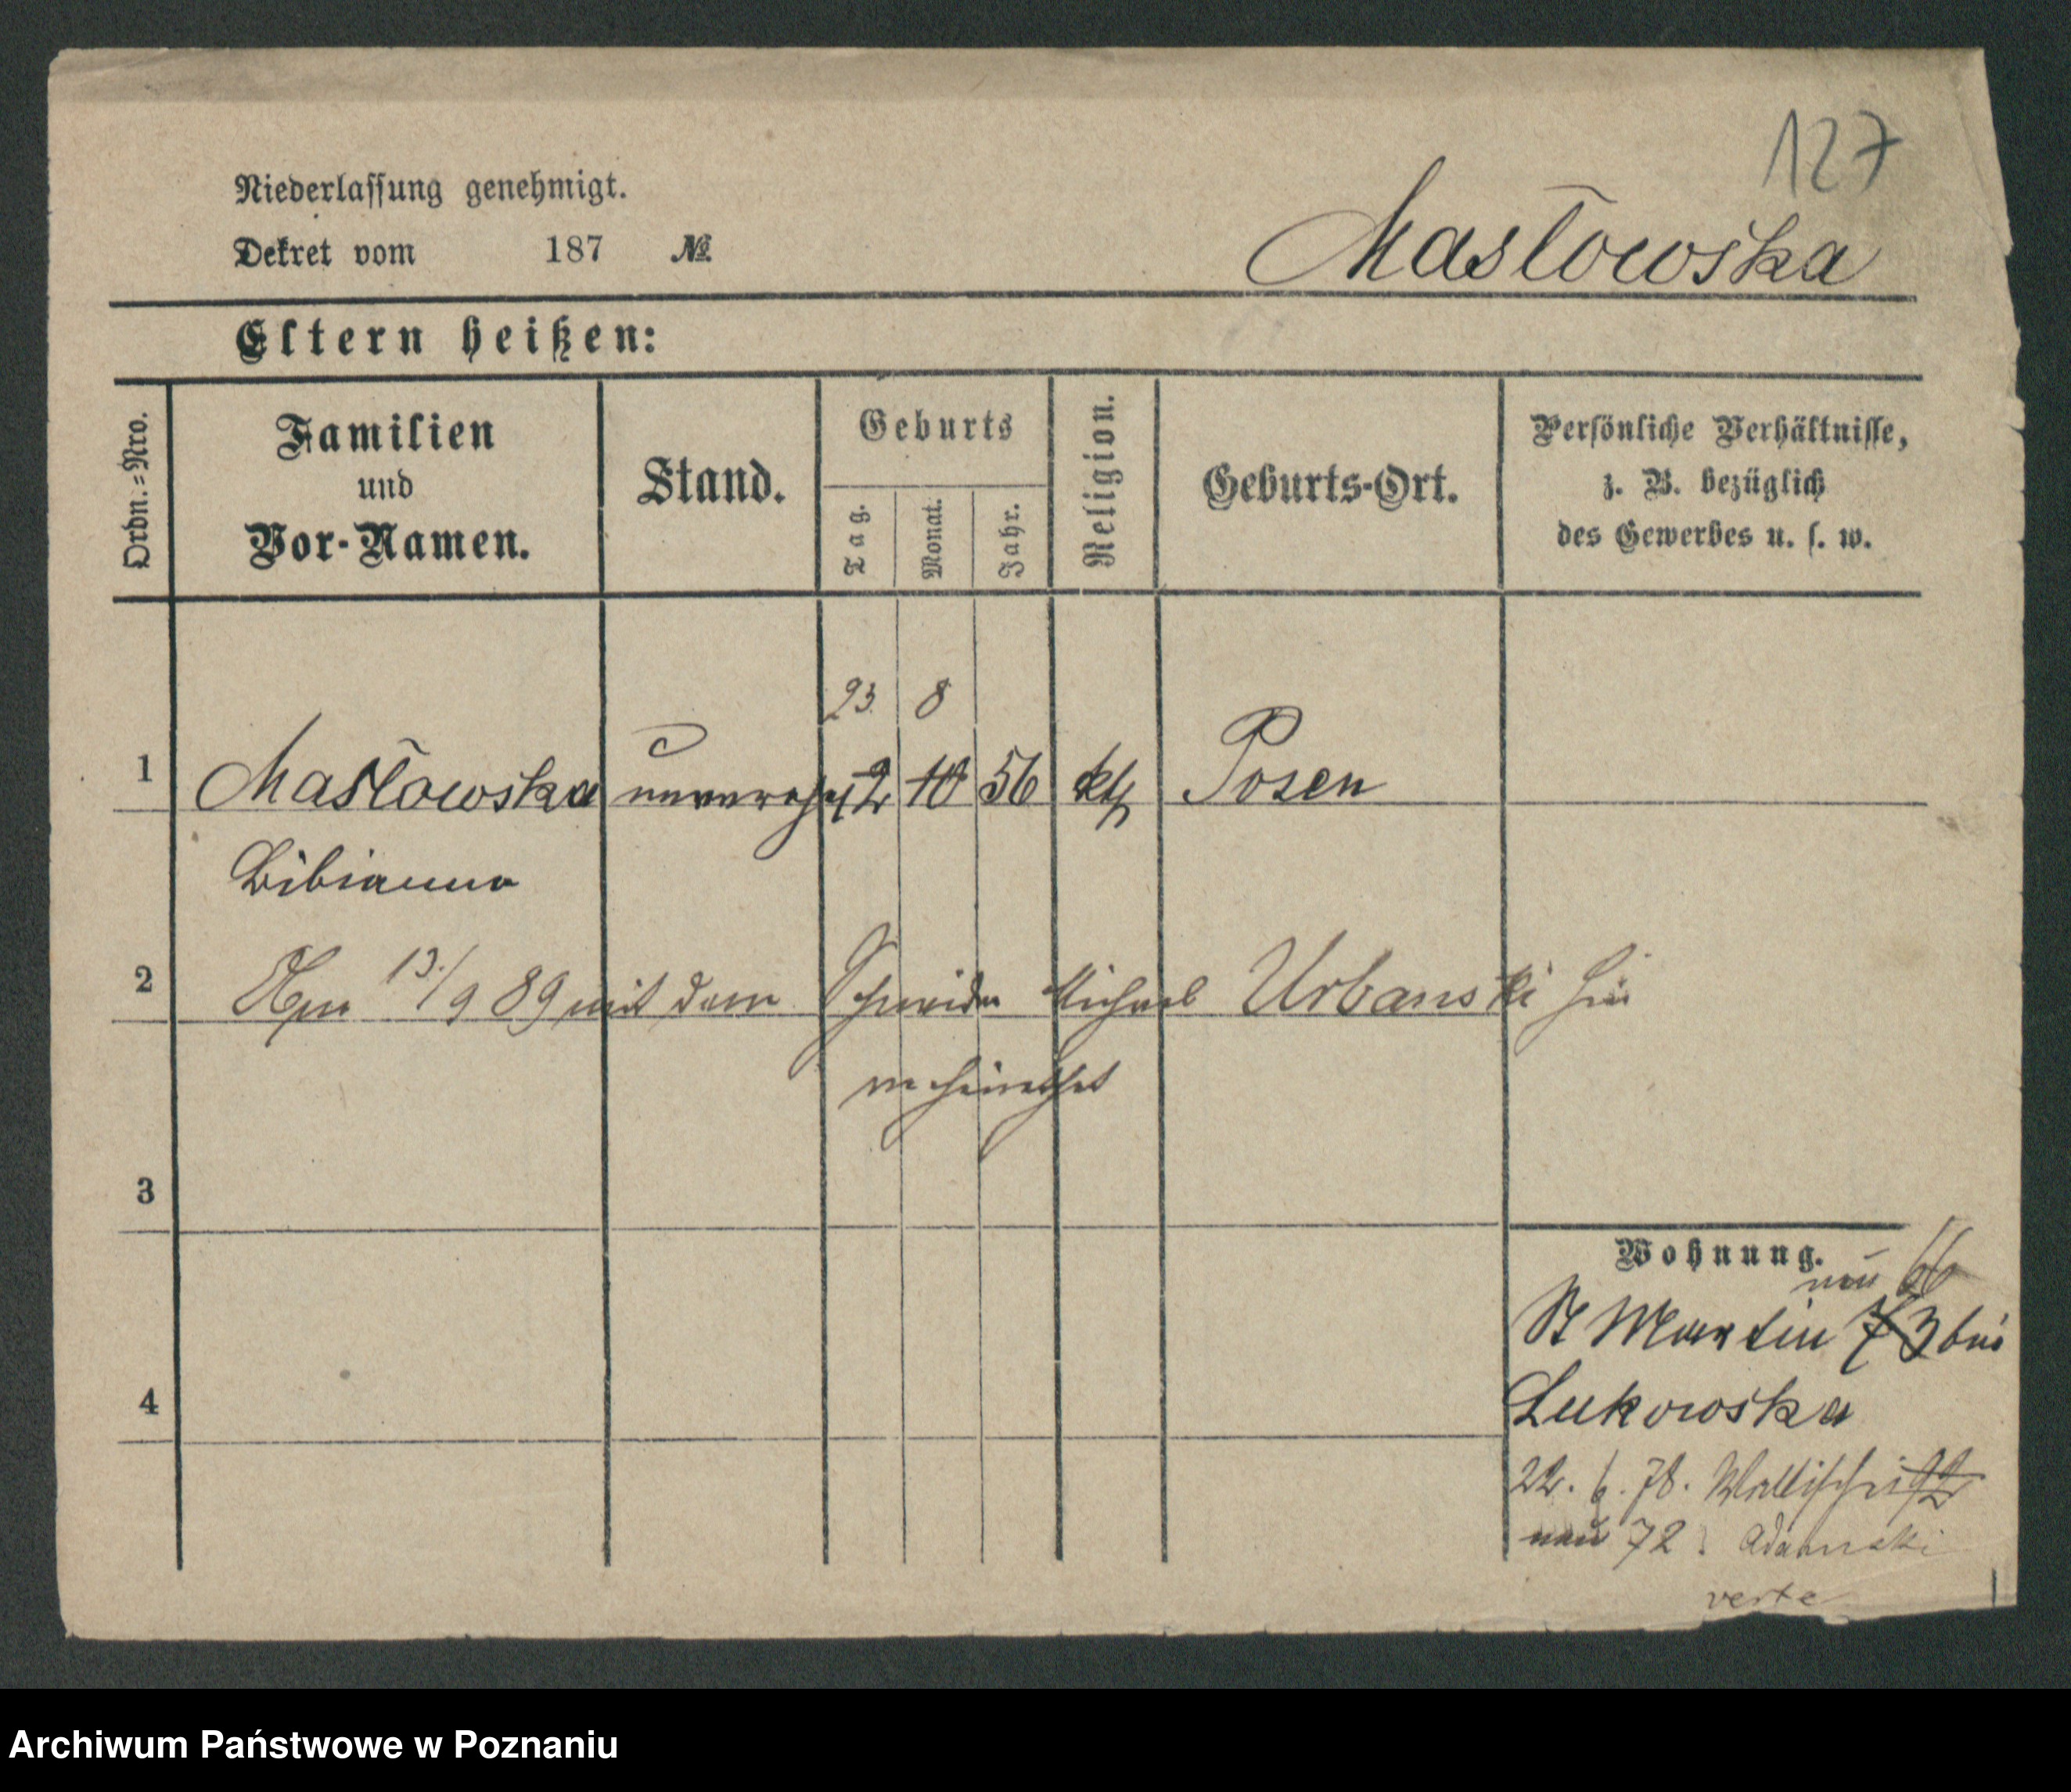 127
Niederlassung genehmigt.
Dekret vom 187 №
Masłowska
Eltern heißen:
Ordn.=Nro.
Familien
und
Vor-Namen.
Stand.
Geburts
Tag.
Monat.
Jahr.
Religion.
Geburts-Ort.
Persönliche Verhältnisse,
z. B. bezüglich
des Gewerbes u. s. w.
23. 8
1 Masłowska unvereh 12 10 56 kth Posen
Bibianna
2 Am 13./9 89 mit dem Schneider Michael Urbanski hier
verheirathet
3
4
Wohnung.
neu 66
St Martin 73 bei
Lukowska
22. 6. 78. Wallischei 92
neu 72. Adamski
verte
Archiwum Państwowe w Poznaniu